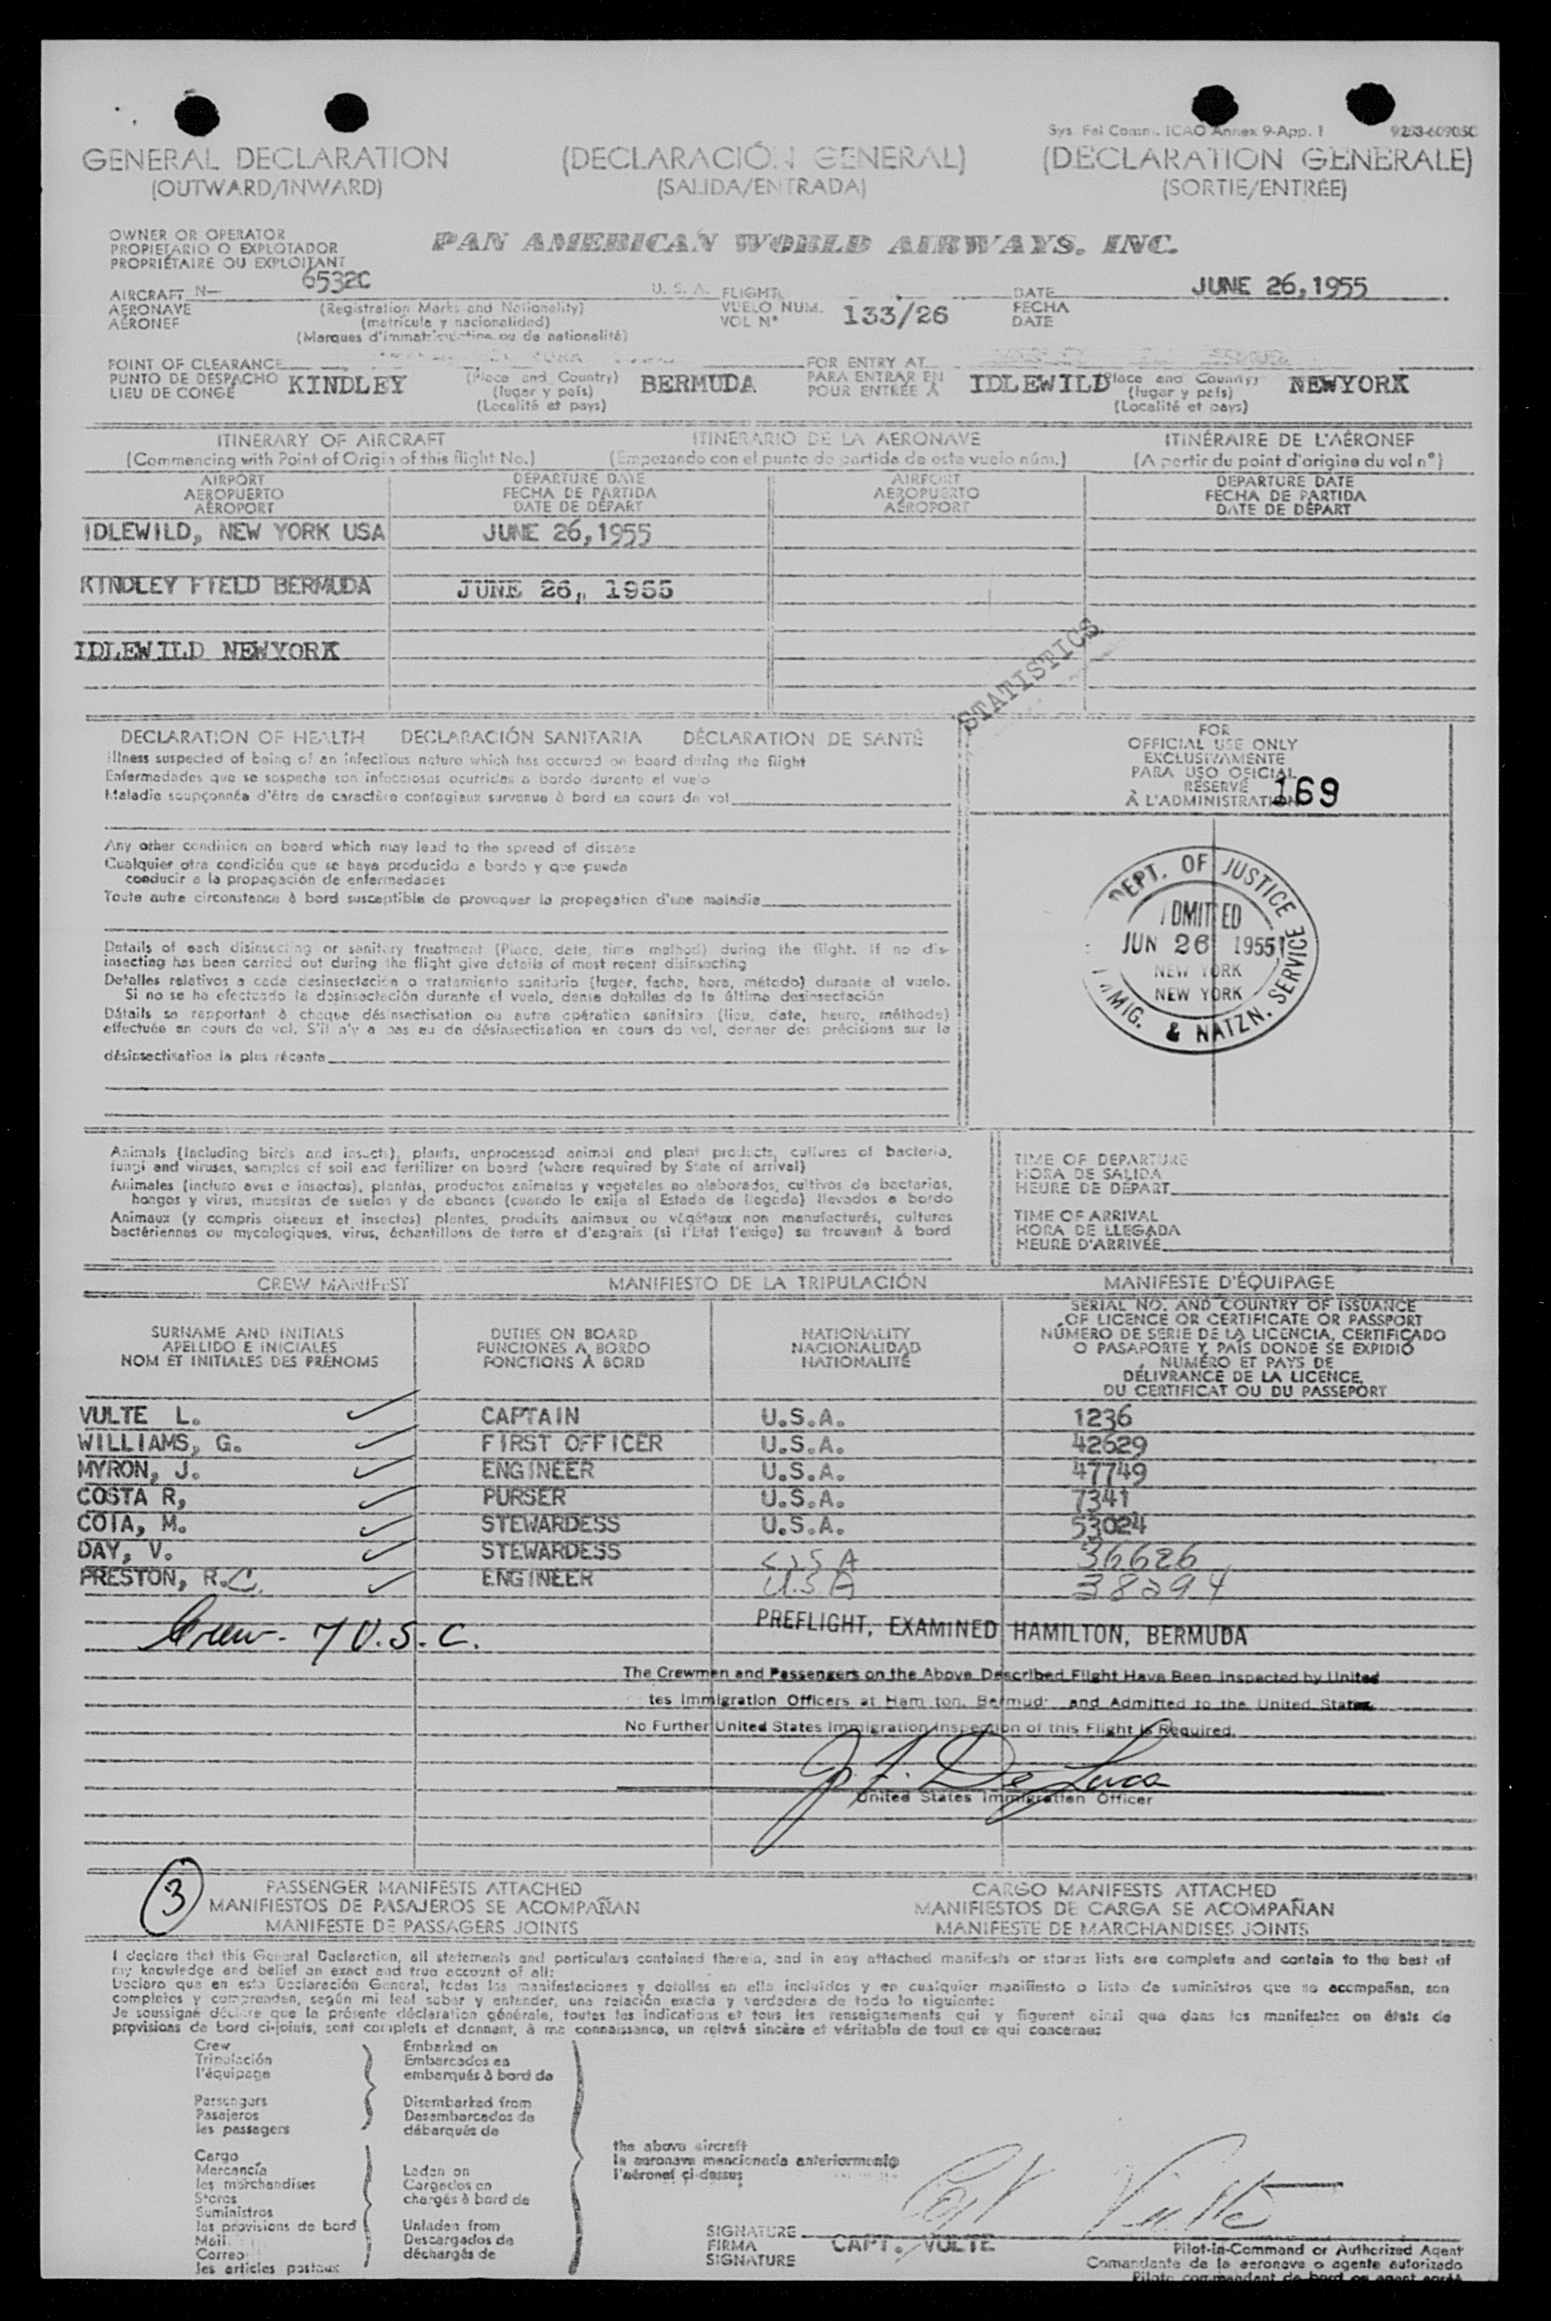 Sys. Fal Comm. ICAO Annex 9-App. 1
GENERAL DECLARATION (DECLARACIÓN GENERAL) (DECLARATION GENERALE)
(OUTWARD/INWARD) (SALIDA/ENTRADA) (SORTIE/ENTRÉE)
OWNER OR OPERATOR
PROPIETARIO O EXPLOTADOR
PROPRIÉTAIRE OU EXPLOITANT
PAN AMERICAN WORLD AIRWAYS, INC.
AIRCRAFT N— 6532C U. S. A.
AERONAVE (Registration Marks and Nationality)
AÉRONEF (matrícula y nacionalidad)
(Marques d'immatriculation ou de nationalité)
FLIGHT
VUELO NUM.
VOL Nº 133/26
DATE JUNE 26,1955
FECHA
DATE
POINT OF CLEARANCE
PUNTO DE DESPACHO KINDLEY (Place and Country) BERMUDA
LIEU DE CONGÉ (lugar y país)
(Localité et pays)
FOR ENTRY AT
PARA ENTRAR EN IDLEWILD (Place and Country) NEWYORK
POUR ENTRÉE À (lugar y país)
(Localité et pays)
ITINERARY OF AIRCRAFT ITINERARIO DE LA AERONAVE ITINÉRAIRE DE L'AÉRONEF
(Commencing with Point of Origin of this flight No.) (Empezando con el punto de partida de este vuelo núm.) (A partir du point d'origine du vol nº)
AIRPORT DEPARTURE DATE AIRPORT DEPARTURE DATE
AEROPUERTO FECHA DE PARTIDA AEROPUERTO FECHA DE PARTIDA
AÉROPORT DATE DE DÉPART AÉROPORT DATE DE DÉPART
IDLEWILD, NEW YORK USA JUNE 26,1955
KINDLEY FIELD BERMUDA JUNE 26, 1955
IDLEWILD NEWYORK
STATISTICS
DECLARATION OF HEALTH DECLARACIÓN SANITARIA DÉCLARATION DE SANTÉ
Illness suspected of being of an infectious nature which has occured on board during the flight
Enfermedades que se sospecha son infecciosas ocurridas a bordo durante el vuelo
Maladie soupçonnée d'être de caractère contagieux survenue à bord en cours de vol
Any other condition on board which may lead to the spread of disease
Cualquier otra condición que se haya producido a bordo y que pueda
conducir a la propagación de enfermedades
Toute autre circonstance à bord susceptible de provoquer la propagation d'une maladie
Details of each disinsecting or sanitary treatment (Place, date, time method) during the flight. If no dis-
insecting has been carried out during the flight give details of most recent disinsecting
Detalles relativos a cada desinsectación o tratamiento sanitario (lugar, fecha, hora, método) durante el vuelo.
Si no se ha efectuado la desinsectación durante el vuelo, dense detalles de la última desinsectación
Détails se rapportant à chaque désinsectisation ou autre opération sanitaire (lieu, date, heure, méthode)
effectuée en cours de vol. S'il n'y a pas eu de désinsectisation en cours de vol, donner des précisions sur la
désinsectisation la plus récente
FOR
OFFICIAL USE ONLY
EXCLUSIVAMENTE
PARA USO OFICIAL
RÉSERVÉ
À L'ADMINISTRATION
169
DEPT. OF JUSTICE
ADMITTED
JUN 26 1955
NEW YORK
NEW YORK
IMMIG. & NATZN. SERVICE
Animals (Including birds and insects), plants, unprocessed animal and plant products, cultures of bacteria,
fungi and viruses, samples of soil and fertilizer on board (where required by State of arrival)
Animales (incluso aves e insectos), plantas, productos animales y vegetales no elaborados, cultivos de bacterias,
hongos y virus, muestras de suelos y de abonos (cuando lo exija el Estado de llegada) llevados a bordo
Animaux (y compris oiseaux et insectes) plantes, produits animaux ou végétaux non manufacturés, cultures
bactériennes ou mycologiques, virus, échantillons de terre et d'engrais (si l'Etat l'exige) se trouvant à bord
TIME OF DEPARTURE
HORA DE SALIDA
HEURE DE DÉPART
TIME OF ARRIVAL
HORA DE LLEGADA
HEURE D'ARRIVÉE
CREW MANIFEST MANIFIESTO DE LA TRIPULACIÓN MANIFESTE D'ÉQUIPAGE
SURNAME AND INITIALS
APELLIDO E INICIALES
NOM ET INITIALES DES PRÉNOMS
DUTIES ON BOARD
FUNCIONES A BORDO
FONCTIONS À BORD
NATIONALITY
NACIONALIDAD
NATIONALITÉ
SERIAL NO. AND COUNTRY OF ISSUANCE
OF LICENCE OR CERTIFICATE OR PASSPORT
NÚMERO DE SERIE DE LA LICENCIA, CERTIFICADO
O PASAPORTE Y PAÍS DONDE SE EXPIDIÓ
NUMÉRO ET PAYS DE
DÉLIVRANCE DE LA LICENCE,
DU CERTIFICAT OU DU PASSEPORT
VULTE L. CAPTAIN U.S.A. 1236
WILLIAMS, G. FIRST OFFICER U.S.A. 42629
MYRON, J. ENGINEER U.S.A. 47749
COSTA R, PURSER U.S.A. 7341
COTA, M. STEWARDESS U.S.A. 53024
DAY, V. STEWARDESS USA 36626
PRESTON, R.C. ENGINEER U.S A 38294
Crew - 7 U.S.C.
PREFLIGHT, EXAMINED HAMILTON, BERMUDA
The Crewmen and Passengers on the Above Described Flight Have Been Inspected by United
tes Immigration Officers at Ham ton, Bermud and Admitted to the United States
No Further United States Immigration Inspection of this Flight is Required.
J. F. De Luca
United States Immigration Officer
3
PASSENGER MANIFESTS ATTACHED CARGO MANIFESTS ATTACHED
MANIFIESTOS DE PASAJEROS SE ACOMPAÑAN MANIFIESTOS DE CARGA SE ACOMPAÑAN
MANIFESTE DE PASSAGERS JOINTS MANIFESTE DE MARCHANDISES JOINTS
I declare that this General Declaration, all statements and particulars contained therein, and in any attached manifests or stores lists are complete and contain to the best of
my knowledge and belief an exact and true account of all:
Declaro que en esta Declaración General, todas las manifestaciones y detalles en ella incluidos y en cualquier manifiesto o lista de suministros que se acompañan, son
completos y comprenden, según mi leal saber y entender, una relación exacta y verdadera de todo lo siguiente:
Je soussigné déclare que la présente déclaration générale, toutes les indications et tous les renseignements qui y figurent ainsi que dans les manifestes ou états de
provisions de bord ci-joints, sont complets et donnent, à ma connaissance, un relevé sincère et véritable de tout ce qui concerne:
Crew
Tripulación
l'équipage
Passengers
Pasajeros
les passagers
Cargo
Mercancía
les marchandises
Stores
Suministros
les provisions de bord
Mail
Correo
les articles postaux
Embarked on
Embarcados en
embarqués à bord de
Disembarked from
Desembarcados de
débarqués de
Laden on
Cargados en
chargés à bord de
Unladen from
Descargados de
déchargés de
the above aircraft
la aeronave mencionada anteriormente
l'aéronef ci-dessus
Capt Vulte
SIGNATURE
FIRMA CAPT. VULTE
SIGNATURE
Pilot-in-Command or Authorized Agent
Comandante de la aeronave o agente autorizado
Pilote commandant de bord ou agent agréé